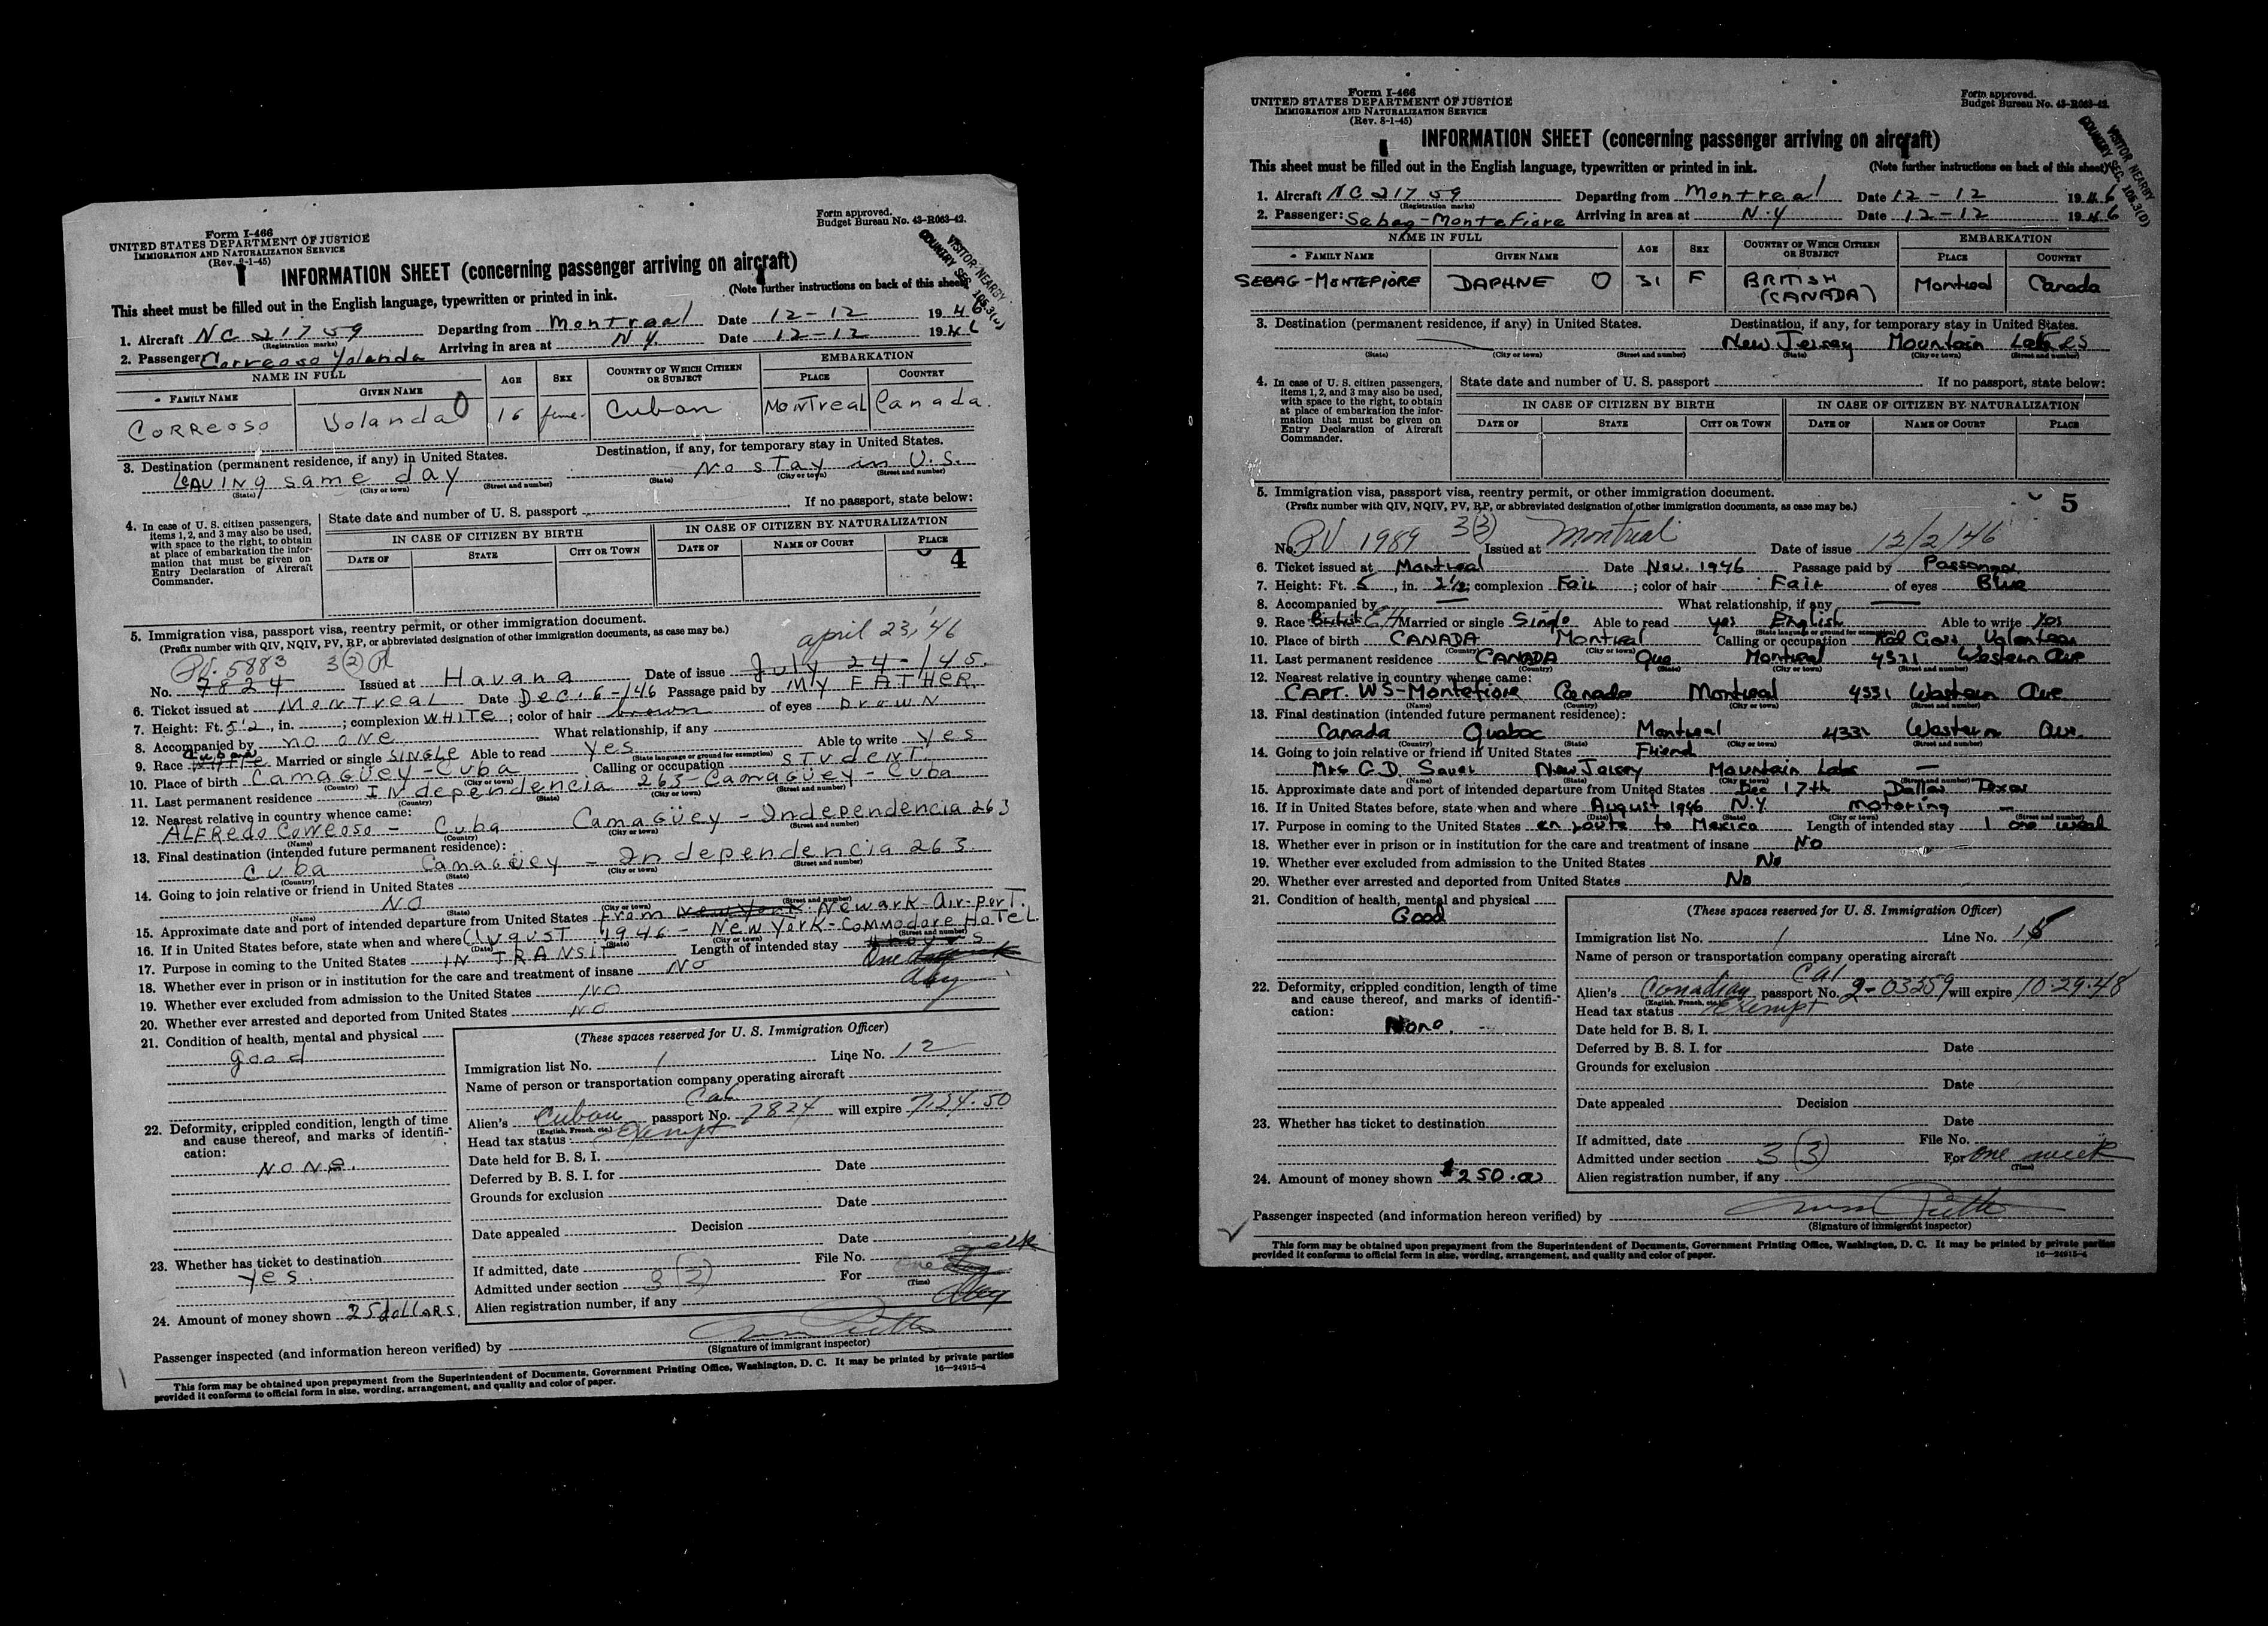 Form I-466
UNITED STATES DEPARTMENT OF JUSTICE
IMMIGRATION AND NATURALIZATION SERVICE
(Rev. 8-1-45)
Form approved.
Budget Bureau No. 43-R063-42.
VISITOR NEARBY
COUNTRY SEC. 105.3(D)
INFORMATION SHEET (concerning passenger arriving on aircraft)
This sheet must be filled out in the English language, typewritten or printed in ink. (Note further instructions on back of this sheet)
1. Aircraft NC 21759 Departing from Montreal Date 12-12 1946
(Registration marks)
2. Passenger: Correoso Yolanda Arriving in area at N.Y. Date 12-12 1946
NAME IN FULL AGE SEX COUNTRY OF WHICH CITIZEN OR SUBJECT EMBARKATION
FAMILY NAME GIVEN NAME PLACE COUNTRY
CORREOSO Yolanda 0 16 feme. Cuban MonTreal Canada.
3. Destination (permanent residence, if any) in United States. Destination, if any, for temporary stay in United States.
LeAVINg same day No sTay in U.S.
(State) (City or town) (Street and number) (State) (City or town) (Street and number)
4. In case of U. S. citizen passengers, items 1, 2, and 3 may also be used, with space to the right, to obtain at place of embarkation the information that must be given on Entry Declaration of Aircraft Commander.
State date and number of U. S. passport If no passport, state below:
IN CASE OF CITIZEN BY BIRTH IN CASE OF CITIZEN BY NATURALIZATION
DATE OF STATE CITY OR TOWN DATE OF NAME OF COURT PLACE
4
5. Immigration visa, passport visa, reentry permit, or other immigration document.
(Prefix number with QIV, NQIV, PV, RP, or abbreviated designation of other immigration documents, as case may be.)
april 23,'46
PV. 5883 3(2)
No. 7824 Issued at Havana Date of issue July 24-/45.
6. Ticket issued at MonTreaL Date Dec. 6-/46 Passage paid by MY FATHER.
7. Height: Ft. 5'2, in. ; complexion WHITe ; color of hair brown of eyes brown
8. Accompanied by no one What relationship, if any
Cuban
9. Race White Married or single SINGLe Able to read Yes Able to write Yes
(State language or ground for exemption)
10. Place of birth Camagüey-Cuba Calling or occupation sTudenT
(Country) (City or town)
11. Last permanent residence INdependencia 263-Camagüey-Cuba
(Country) (State) (City or town) (Street and number)
12. Nearest relative in country whence came:
ALFRedo Correoso - Cuba Camagüey - Independencia 263
(Name) (Country) (City or town) (Street and number)
13. Final destination (intended future permanent residence):
Cuba Camagüey - Independencia 263
(Country) (State) (City or town) (Street and number)
14. Going to join relative or friend in United States
NO
(Name) (State) (City or town) (Street and number)
15. Approximate date and port of intended departure from United States From New York Newark-Air-porT.
16. If in United States before, state when and where August 1946 - New York-Commodore HoTeL
(Date) (State) (City or town) (Street and number)
17. Purpose in coming to the United States IN TRANSIT Length of intended stay One
18. Whether ever in prison or in institution for the care and treatment of insane NO
19. Whether ever excluded from admission to the United States NO
20. Whether ever arrested and deported from United States NO
21. Condition of health, mental and physical
good
22. Deformity, crippled condition, length of time and cause thereof, and marks of identification:
NONe.
23. Whether has ticket to destination
Yes.
24. Amount of money shown 25 dollaRs.
(These spaces reserved for U. S. Immigration Officer)
Immigration list No. 1 Line No. 12
Name of person or transportation company operating aircraft
Cal
Alien's Cuban passport No. 7824 will expire 7.24.50
(English, French, etc.)
Head tax status Exempt
Date held for B. S. I.
Deferred by B. S. I. for Date
Grounds for exclusion
Date
Date appealed Decision
Date
If admitted, date File No.
Admitted under section 3(2) For one
(Time)
Alien registration number, if any
Passenger inspected (and information hereon verified) by
(Signature of immigrant inspector)
This form may be obtained upon prepayment from the Superintendent of Documents, Government Printing Office, Washington, D. C. It may be printed by private parties
provided it conforms to official form in size, wording, arrangement, and quality and color of paper. 16—24915-4
Form I-466
UNITED STATES DEPARTMENT OF JUSTICE
IMMIGRATION AND NATURALIZATION SERVICE
(Rev. 8-1-45)
Form approved.
Budget Bureau No. 43-R063-42.
VISITOR NEARBY
COUNTRY SEC. 105.3(D)
INFORMATION SHEET (concerning passenger arriving on aircraft)
This sheet must be filled out in the English language, typewritten or printed in ink. (Note further instructions on back of this sheet)
1. Aircraft NC 21759 Departing from Montreal Date 12-12 1946
(Registration marks)
2. Passenger: Sebag-Montefiore Arriving in area at N.Y Date 12-12 1946
NAME IN FULL AGE SEX COUNTRY OF WHICH CITIZEN OR SUBJECT EMBARKATION
FAMILY NAME GIVEN NAME PLACE COUNTRY
SEBAG-MONTEFIORE DAPHNE O 31 F BRITISH (CANADA) Montreal Canada
3. Destination (permanent residence, if any) in United States. Destination, if any, for temporary stay in United States.
New Jersey Mountain Lakes
(State) (City or town) (Street and number) (State) (City or town) (Street and number)
4. In case of U. S. citizen passengers, items 1, 2, and 3 may also be used, with space to the right, to obtain at place of embarkation the information that must be given on Entry Declaration of Aircraft Commander.
State date and number of U. S. passport If no passport, state below:
IN CASE OF CITIZEN BY BIRTH IN CASE OF CITIZEN BY NATURALIZATION
DATE OF STATE CITY OR TOWN DATE OF NAME OF COURT PLACE
5. Immigration visa, passport visa, reentry permit, or other immigration document. 5
(Prefix number with QIV, NQIV, PV, RP, or abbreviated designation of other immigration documents, as case may be.)
No. PV 1989 3(3) Issued at Montreal Date of issue 12/2/46
6. Ticket issued at Montreal Date Nov. 1946 Passage paid by Passenger
7. Height: Ft. 5, in. 2½; complexion Fair ; color of hair Fair of eyes Blue
8. Accompanied by — What relationship, if any —
9. Race British EH Married or single Single Able to read yes English Able to write Yes
(State language or ground for exemption)
10. Place of birth CANADA Montreal Calling or occupation Red Cross Volunteer
(Country) (City or town)
11. Last permanent residence CANADA Que Montreal 4331 Western Ave
(Country) (State) (City or town) (Street and number)
12. Nearest relative in country whence came:
CAPT. W S-Montefiore Canada Montreal 4331 Western Ave
(Name) (Country) (City or town) (Street and number)
13. Final destination (intended future permanent residence):
Canada Quebec Montreal 4331 Western Ave.
(Country) (State) (City or town) (Street and number)
14. Going to join relative or friend in United States Friend
Mrs C.D. New Jersey Mountain Lake —
(Name) (State) (City or town) (Street and number)
15. Approximate date and port of intended departure from United States Dec 17th Dallas Texas
16. If in United States before, state when and where August 1946 N.Y. Motoring —
(Date) (State) (City or town) (Street and number)
17. Purpose in coming to the United States en route to Mexico Length of intended stay 1 one week
18. Whether ever in prison or in institution for the care and treatment of insane No
19. Whether ever excluded from admission to the United States No
20. Whether ever arrested and deported from United States No
21. Condition of health, mental and physical
Good
22. Deformity, crippled condition, length of time and cause thereof, and marks of identification:
None.
23. Whether has ticket to destination
24. Amount of money shown $250.00
(These spaces reserved for U. S. Immigration Officer)
Immigration list No. 1 Line No. 15
Name of person or transportation company operating aircraft
Cal
Alien's Canadian passport No. 2-03359 will expire 10-29-48
(English, French, etc.)
Head tax status Exempt
Date held for B. S. I.
Deferred by B. S. I. for Date
Grounds for exclusion
Date
Date appealed Decision
Date
If admitted, date File No.
Admitted under section 3(3) For one week
(Time)
Alien registration number, if any
Passenger inspected (and information hereon verified) by
(Signature of immigrant inspector)
This form may be obtained upon prepayment from the Superintendent of Documents, Government Printing Office, Washington, D. C. It may be printed by private parties
provided it conforms to official form in size, wording, arrangement, and quality and color of paper. 16—24915-4